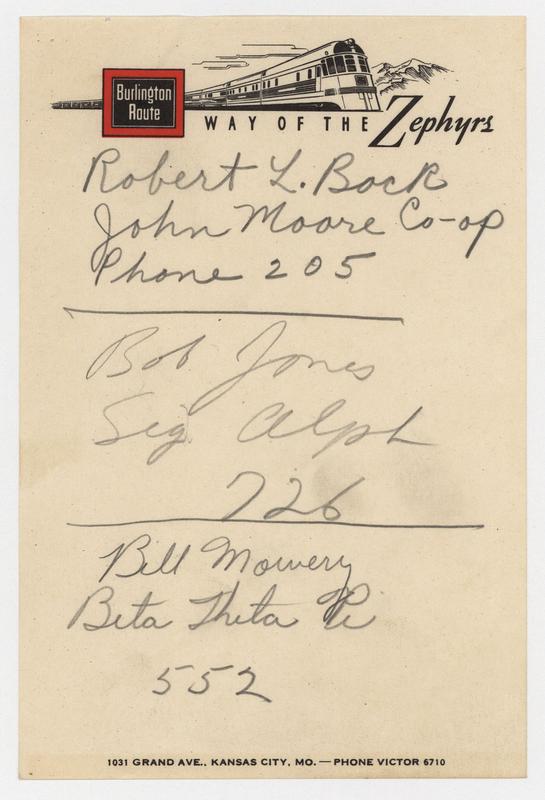 Burlington
Route
WAY OF THE Zephyrs
Robert L. Bock
John Moore Co-op
Phone 205
Bob Jones
Sig Alph
726
Bill Mowery
Beta Theta Pi
552
1031 GRAND AVE., KANSAS CITY, MO. — PHONE VICTOR 6710